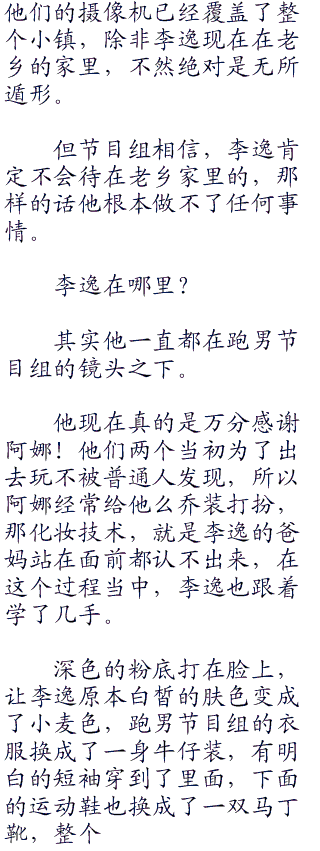 他们的摄像机已经覆盖了整
个小镇，除非李逸现在在老
乡的家里，不然绝对是无所
遁形。
但节目组相信，李逸肯
定不会待在老乡家里的，那
样的话他根本做不了任何事
情。
李逸在哪里？
其实他一直都在跑男节
目组的镜头之下。
他现在真的是万分感谢
阿娜！他们两个当初为了出
去玩不被普通人发现，所以
阿娜经常给他么乔装打扮，
那化妆技术，就是李逸的爸
妈站在面前都认不出来，在
这个过程当中，李逸也跟着
学了几手。
深色的粉底打在脸上，
让李逸原本白皙的肤色变成
了小麦色，跑男节目组的衣
服换成了一身牛仔装，有明
白的短袖穿到了里面，下面
的运动鞋也换成了一双马丁
靴，整个